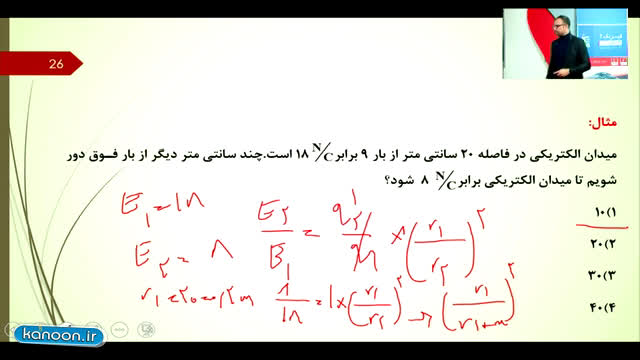 26
مثال:
میدان الکتریکی در فاصله ۲۰ سانتی متر از بار ۹ برابر N/C ۱۸ است.چند سانتی متر دیگر از بار فــوق دور
شویم تا میدان الکتریکی برابر N/C ۸ شود؟
۱)۱۰
۲)۲۰
۳)۳۰
۴)۴۰
E۱=۱۸
E۲= ۸
E۲/E۱ =
×(r۱/r۲)^۲
۸/۱۸ =۱×(r۱/r۲)^۲ → (r۱/r۱+m)^۲
kanoon.ir